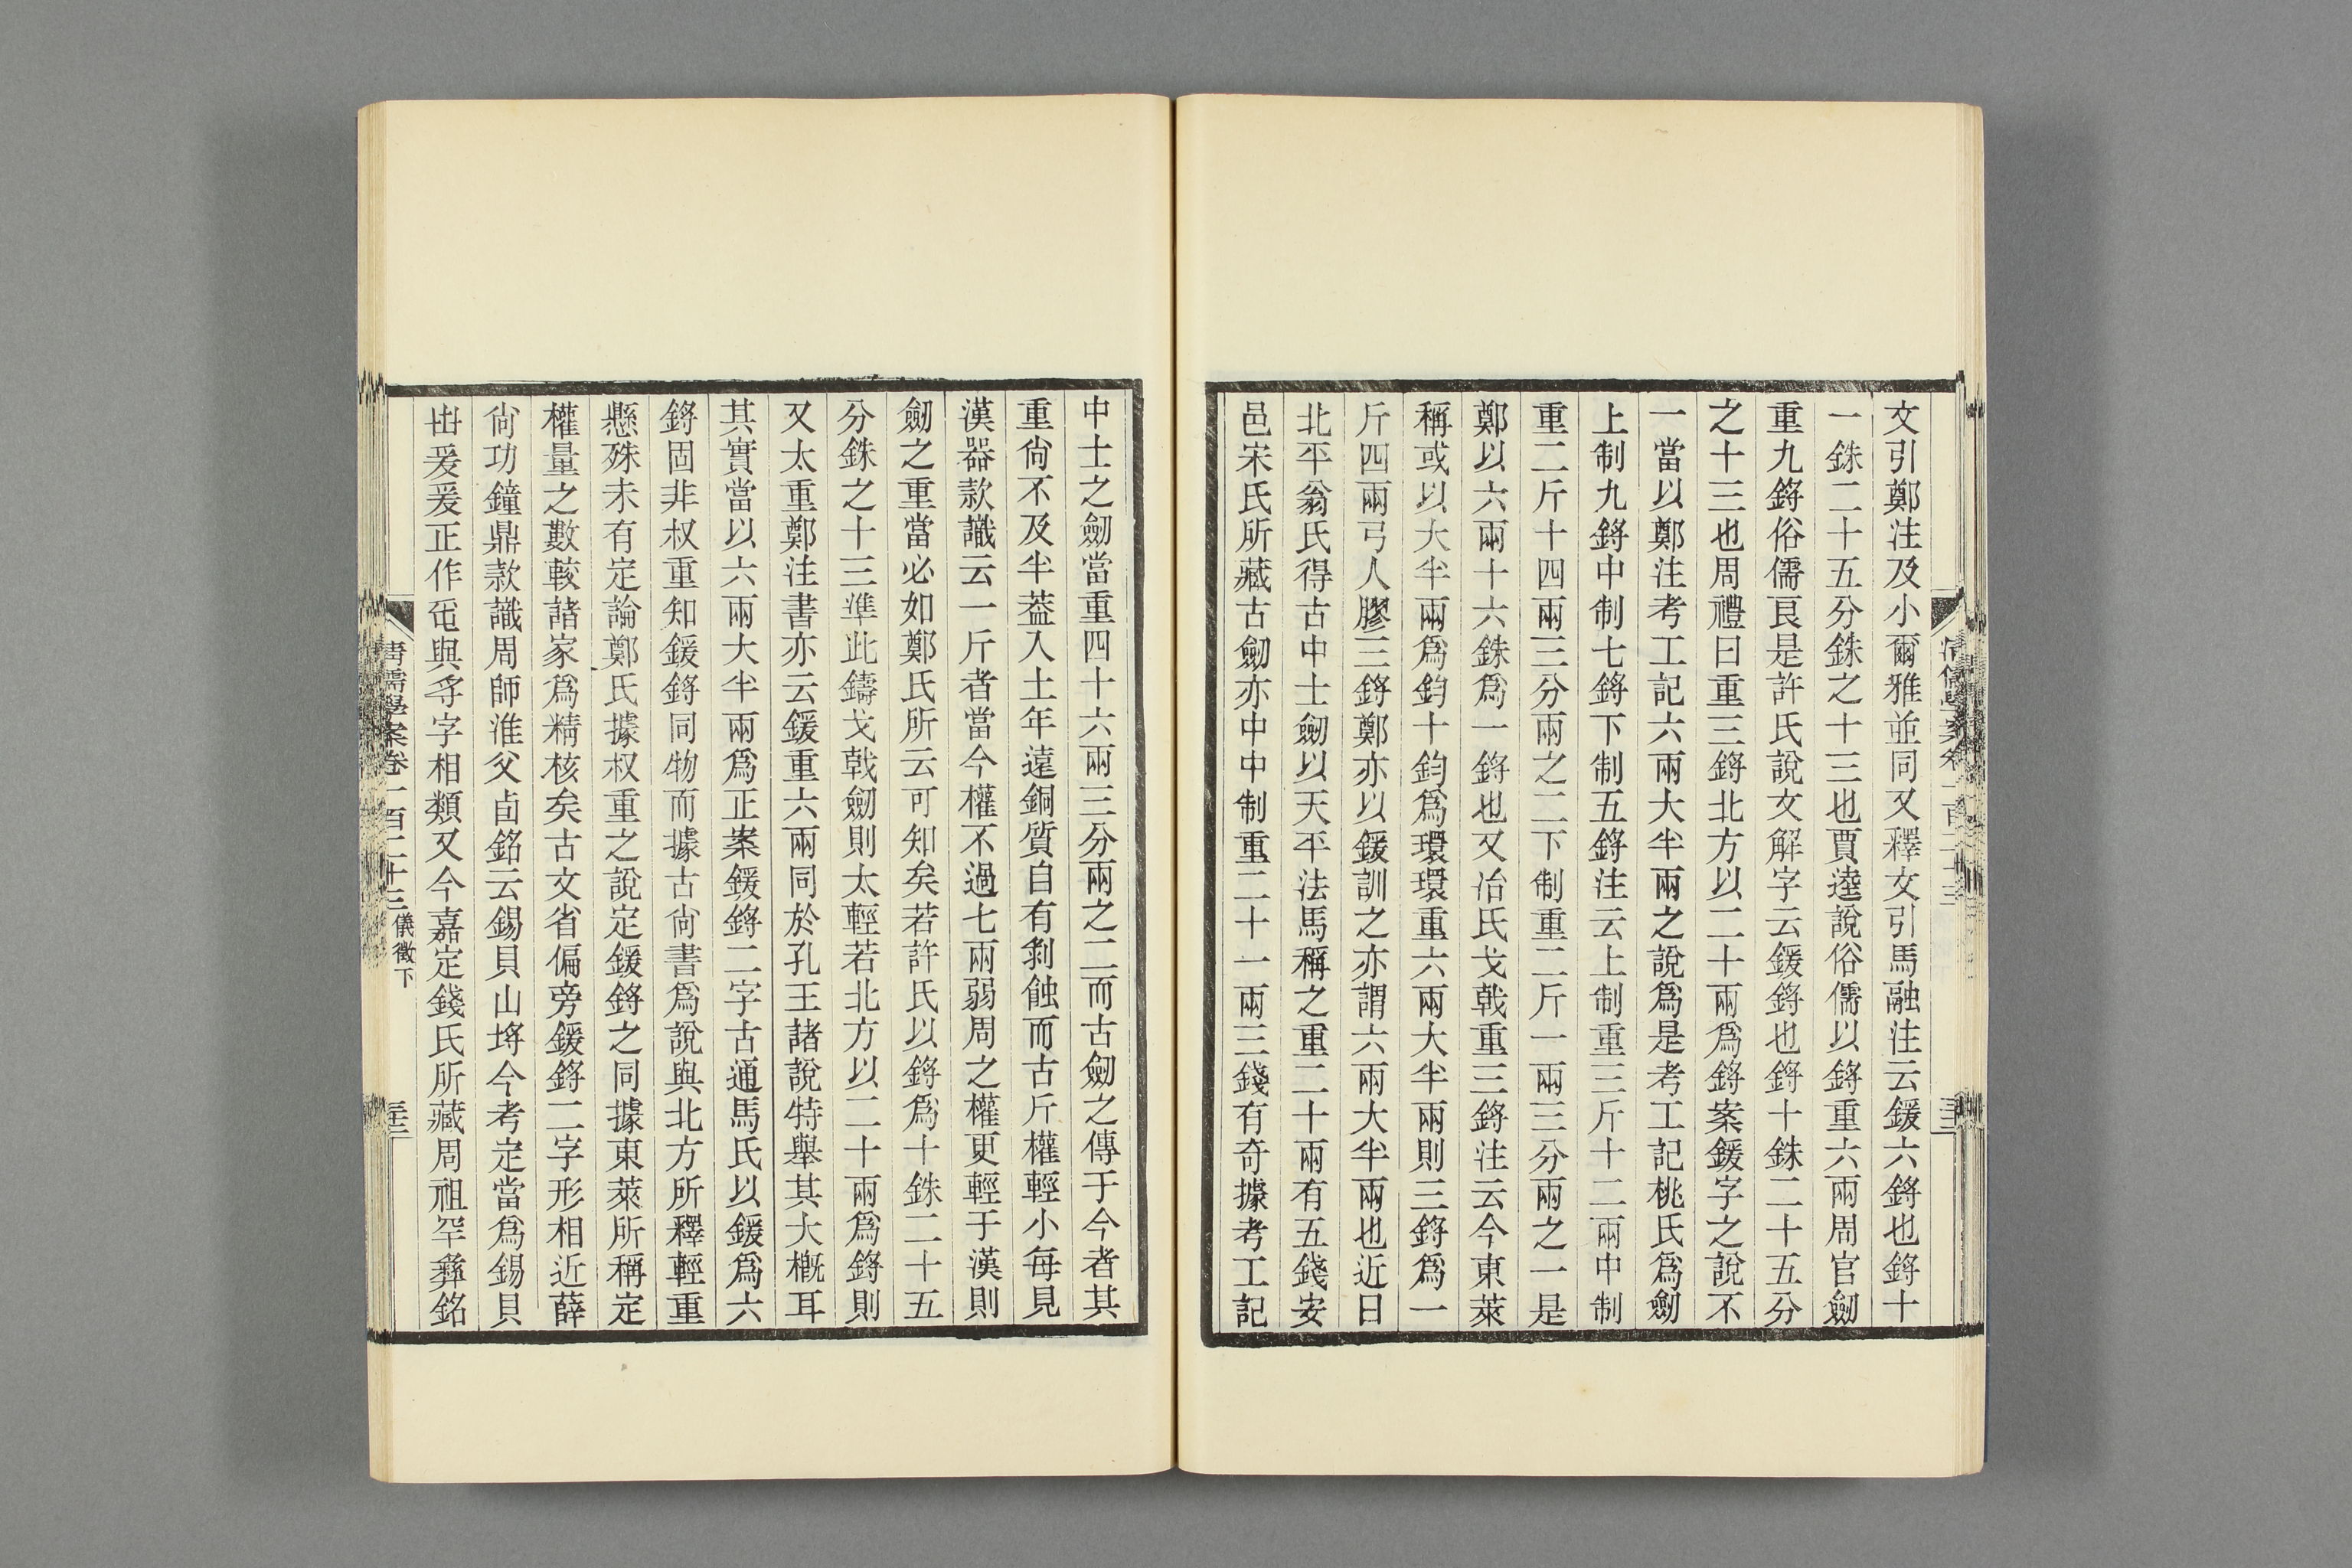 文引鄭注及小爾雅並同又釋文引馬融注云鍰六鋝也鋝十
一銖二十五分銖之十三也賈逵說俗儒以鋝重六兩周官劒
重九鋝俗儒良是許氏說文解字云鍰鋝也鋝十銖二十五分
之十三也周禮曰重三鋝北方以二十兩爲鋝案鍰字之說不
一當以鄭注考工記六兩大半兩之說爲是考工記桃氏爲劒
上制九鋝中制七鋝下制五鋝注云上制重三斤十二兩中制
重二斤十四兩三分兩之二下制重二斤一兩三分兩之一是
鄭以六兩十六銖爲一鋝也又冶氏戈戟重三鋝注云今東萊
稱或以大半兩爲鈞十鈞爲環環重六兩大半兩則三鋝爲一
斤四兩弓人膠三鋝鄭亦以鍰訓之亦謂六兩大半兩也近日
北平翁氏得古中士劒以天平法馬稱之重二十兩有五錢安
邑宋氏所藏古劒亦中中制重二十一兩三錢有奇據考工記
中士之劒當重四十六兩三分兩之二而古劒之傳于今者其
重尙不及半葢入土年遠銅質自有剝蝕而古斤權輕小每見
漢器款識云一斤者當今權不過七兩弱周之權更輕于漢則
劒之重當必如鄭氏所云可知矣若許氏以鋝爲十銖二十五
分銖之十三準此鑄戈戟劒則太輕若北方以二十兩爲鋝則
又太重鄭注書亦云鍰重六兩同於孔王諸說特舉其大槪耳
其實當以六兩大半兩爲正案鍰鋝二字古通馬氏以鍰爲六
鋝固非叔重知鍰鋝同物而據古尙書爲說與北方所釋輕重
懸殊未有定論鄭氏據叔重之說定鍰鋝之同據東萊所稱定
權量之數較諸家爲精核矣古文省偏旁鍰鋝二字形相近薛
尙功鐘鼎款識周師淮父卣銘云錫貝山埒今考定當爲錫貝
爰爰正作與寽字相類又今嘉定錢氏所藏周祖罕彝銘
清儒學案卷一百二十三 儀徵下